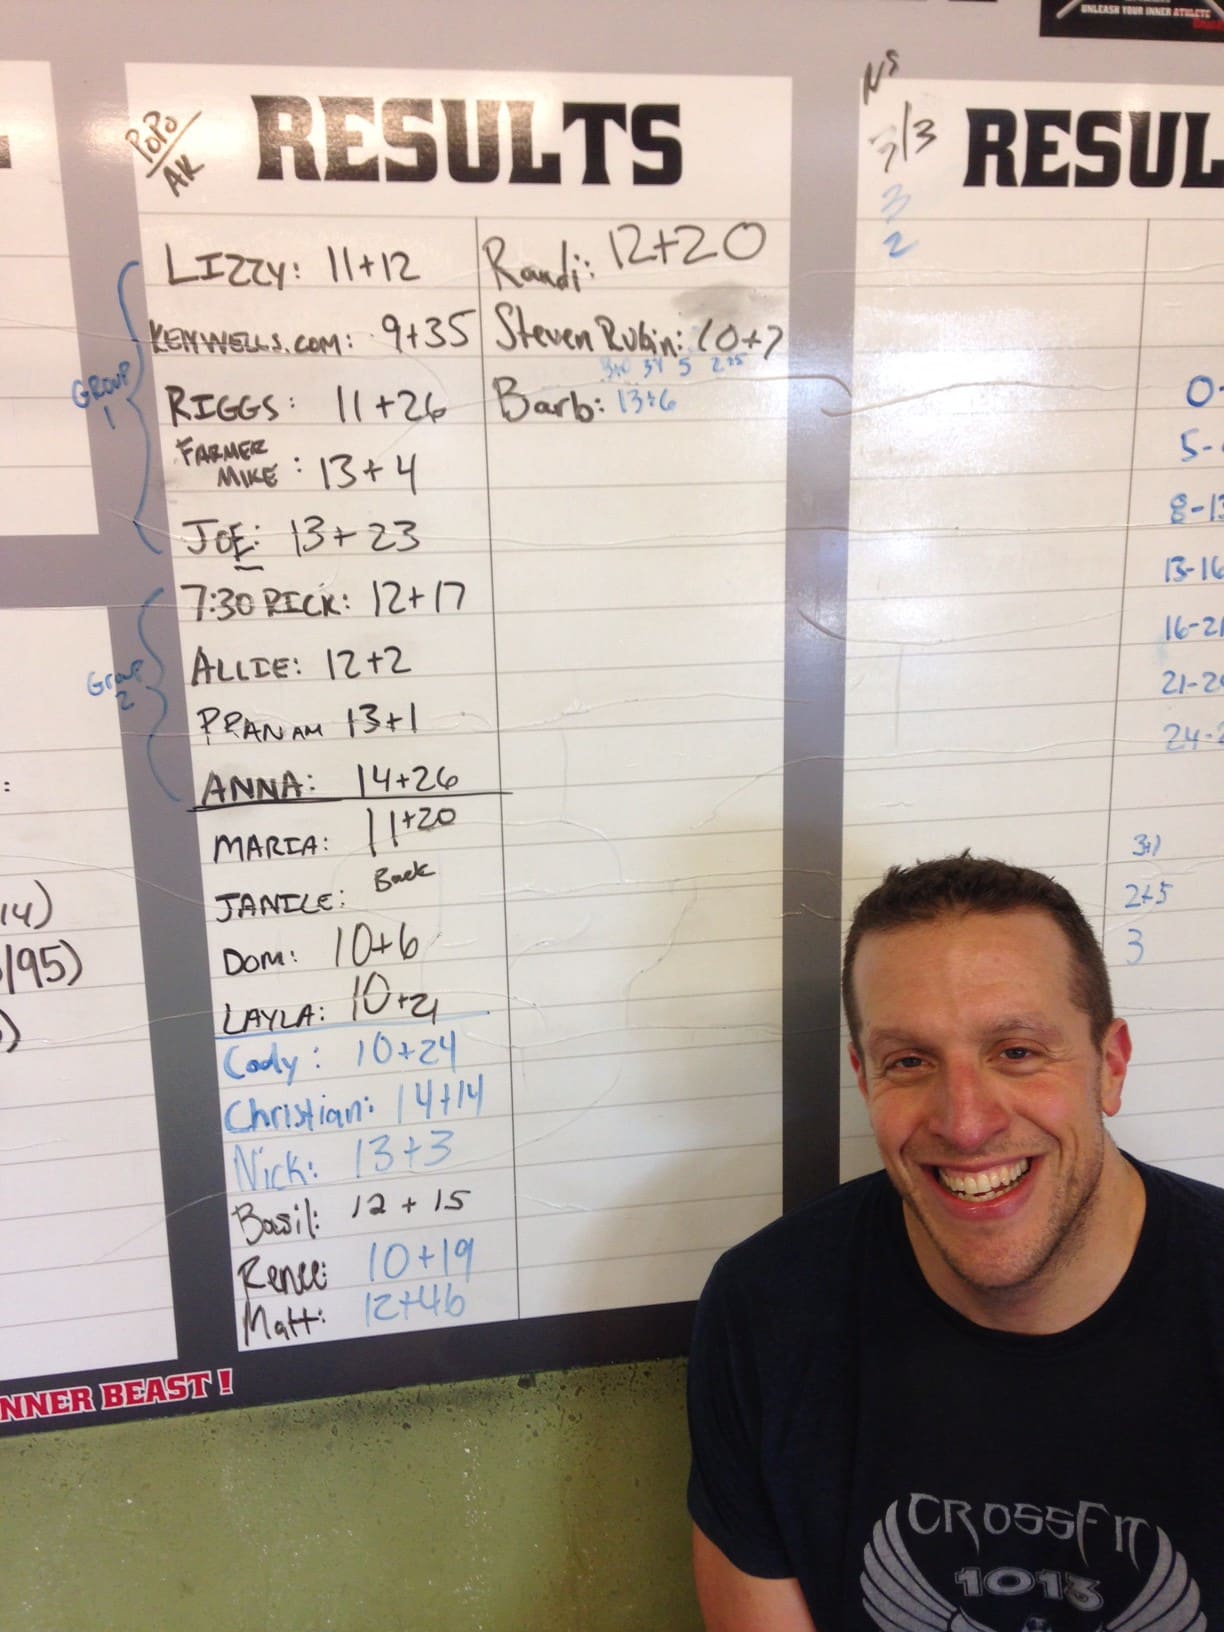 UNLEASH YOUR INNER ATHLETE
POPO/
AK
RESULTS
GROUP
1
LIZZY: 11+12
KENWELLS.COM: 9+35
RIGGS: 11+26
FARMER
MIKE: 13+4
JOE: 13+23
Group
2
7:30 RICK: 12+17
ALLIE: 12+2
PRANAM 13+1
ANNA: 14+26
MARIA: 11+20
JANICE: Back
DOM: 10+6
LAYLA: 10+21
Cody: 10+24
Christian: 14+14
Nick: 13+3
Basil: 12+15
Renee: 10+19
Matt: 12+46
Randi: 12+20
Steven Rubin: 10+7
Barb: 13+6
NS
7/3
3
2
RESUL
0-
5-
8-13
13-16
16-21
21-24
24-2
3+1
2+5
3
14)
/95)
)
NNER BEAST!
CROSSFIT
1013